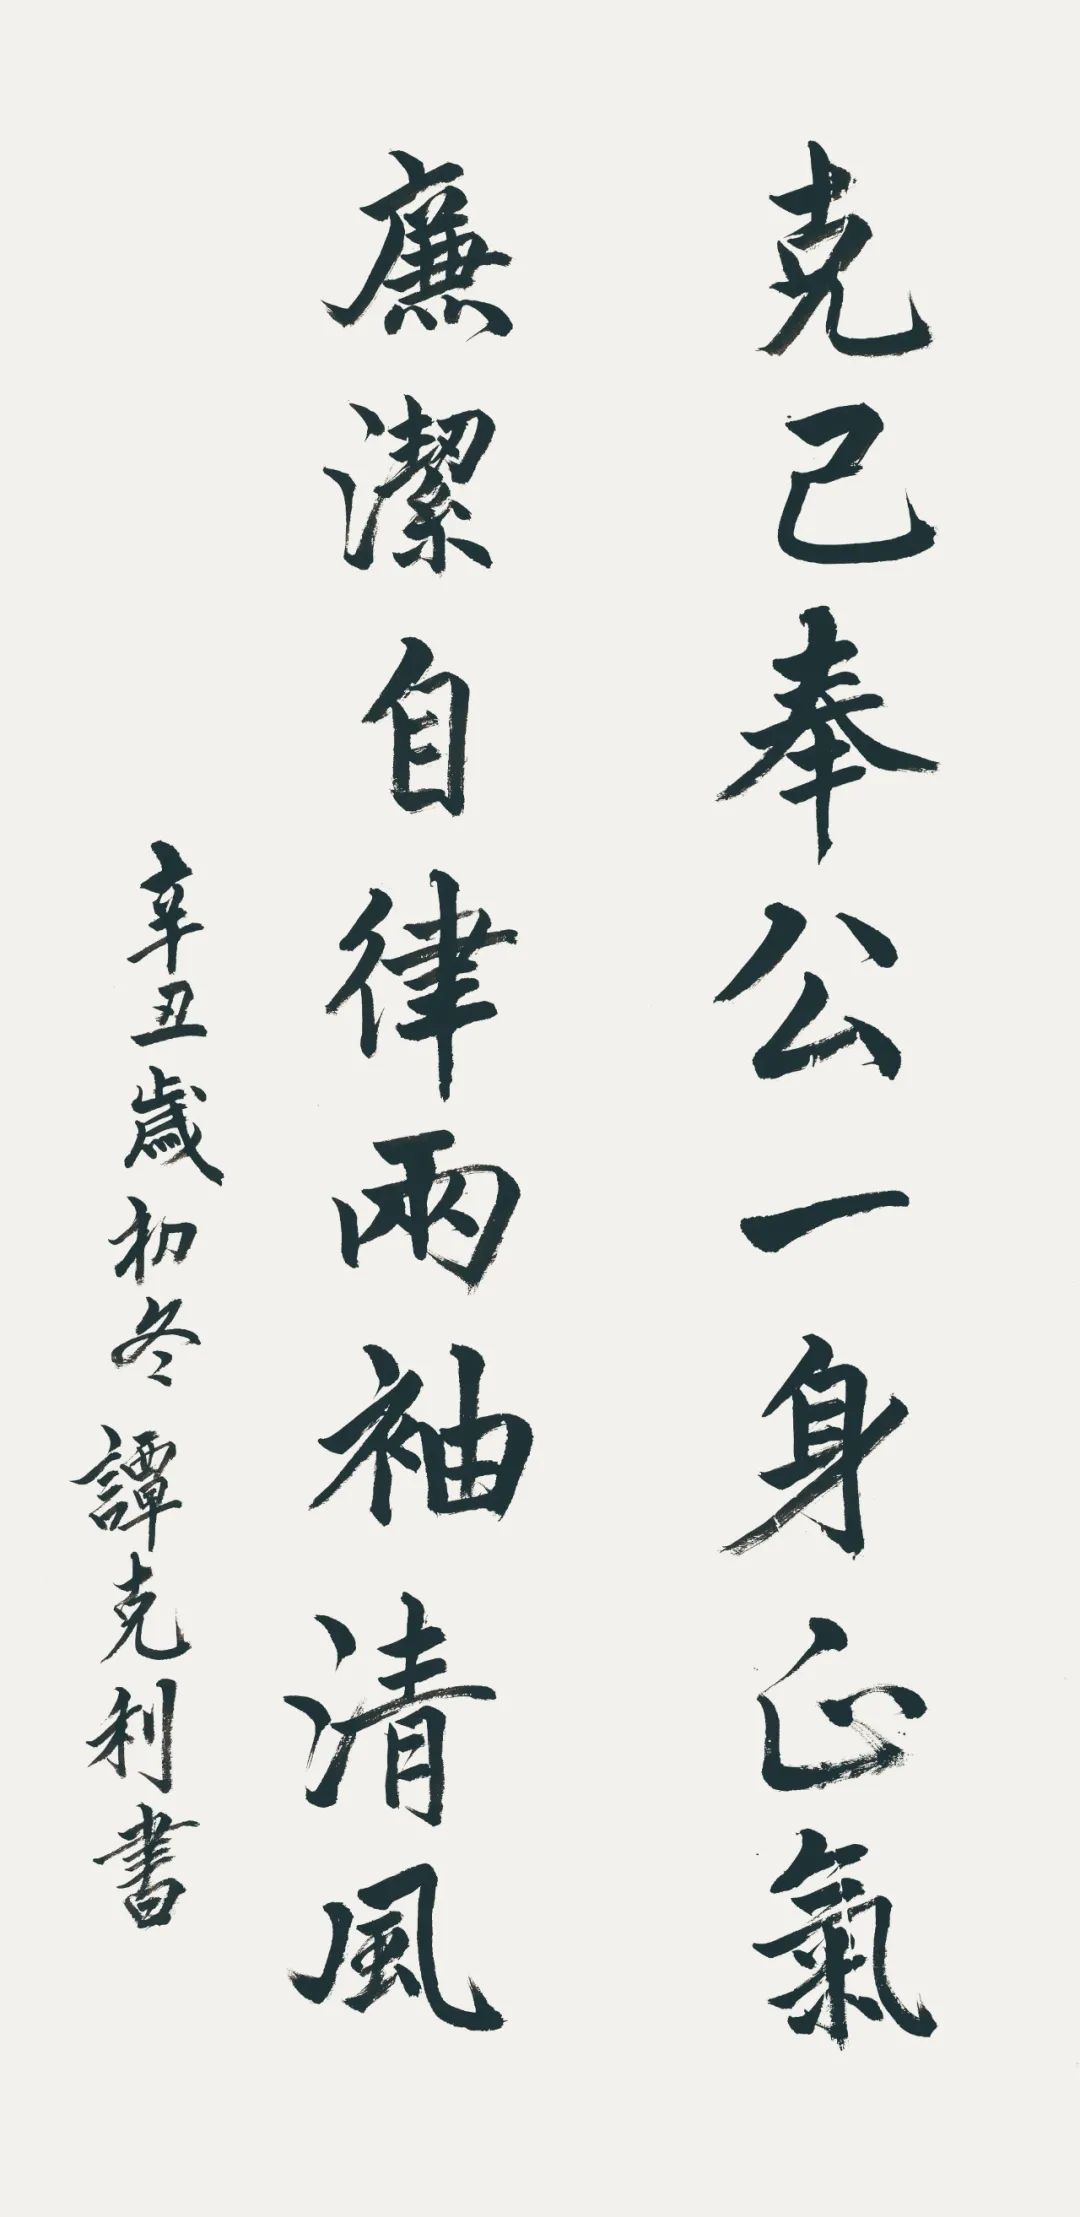 克己奉公一身正氣
廉潔自律兩袖清風
辛丑歲初冬譚克利書